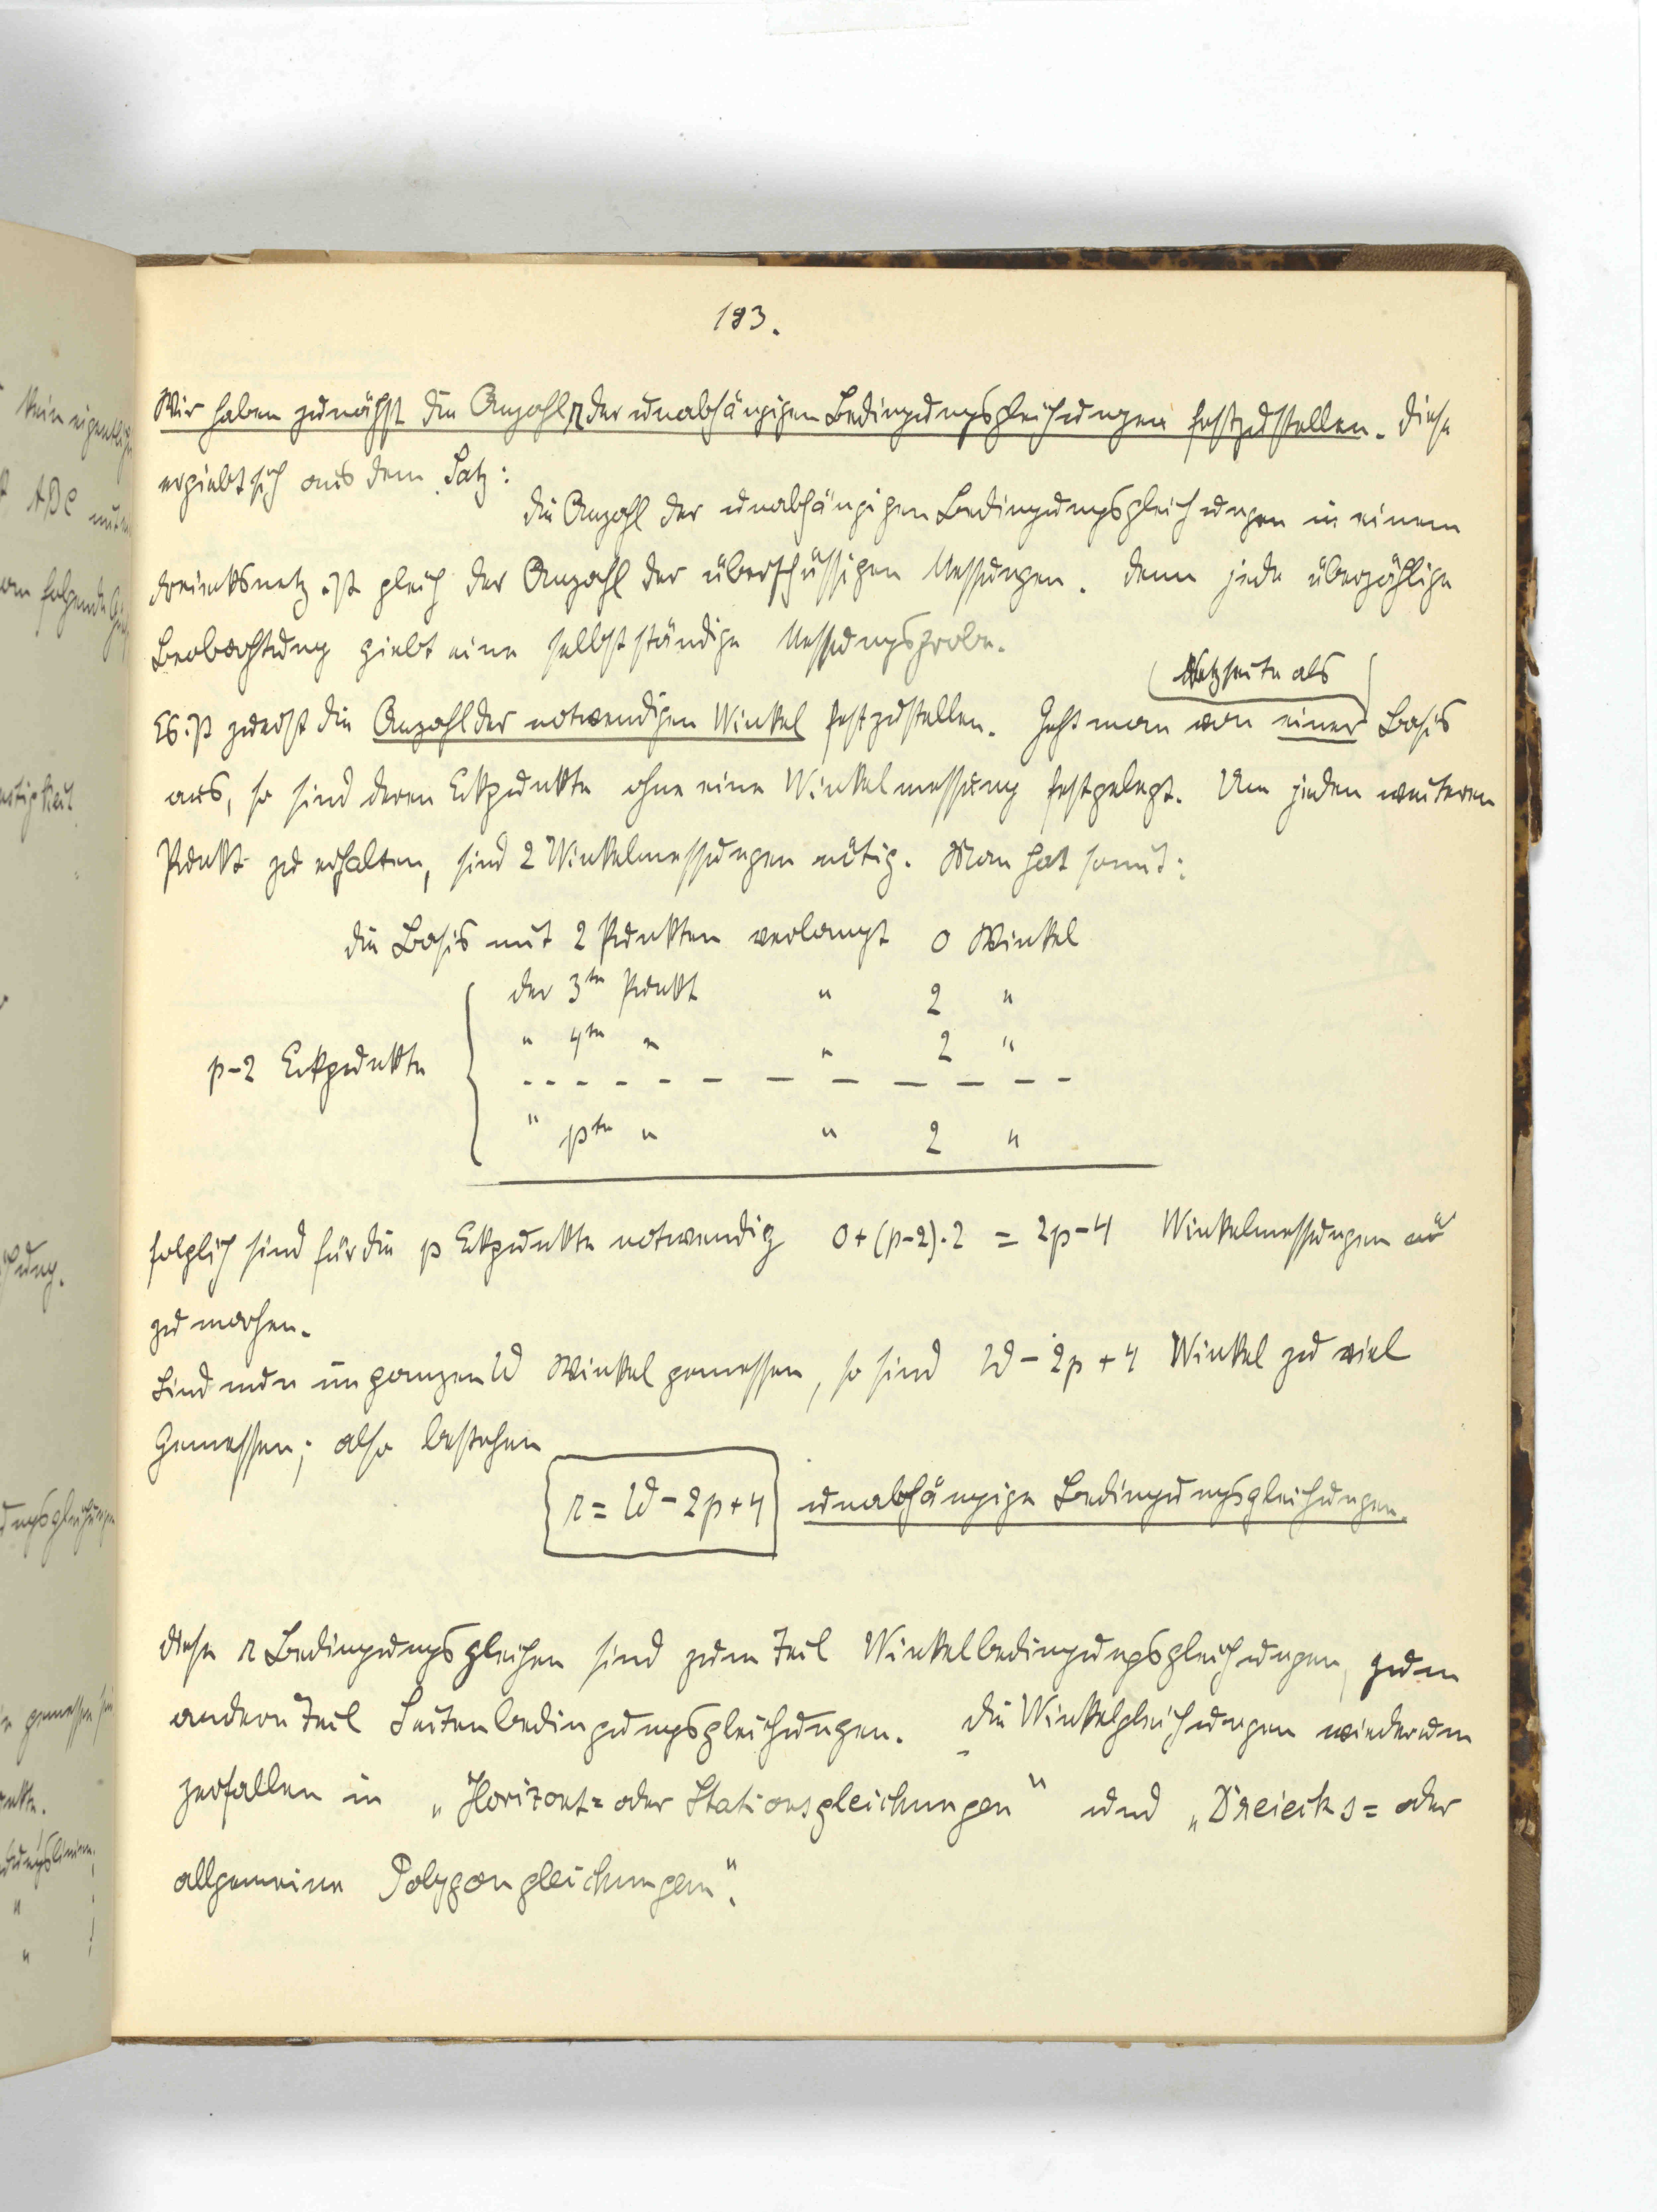 183.
Wir haben zunächst die Anzahl r der unabhängigen Bedingungsgleichungen festzustellen. Diese
ergiebt sich aus dem Satz:
Die Anzahl der unabhängigen Bedingungsgleichungen in einem
Dreiecksnetz ist gleich der Anzahl der überschüssigen Messungen. Denn jede überzählige
Beobachtung giebt eine selbstständige Messungsprobe.
Netzseite als
Es ist zuerst die Anzahl der notwendigen Winkel festzustellen. Geht man von einer Basis
aus, so sind deren Eckpunkte ohne eine Winkelmessung festgelegt. Um jeden weiteren
Punkt zu erhalten, sind 2 Winkelmessungen nötig. Man hat somit:
die Basis mit 2 Punkten verlangt 0 Winkel
der 3te Punkt " 2 "
" 4te " " 2 "
p-2 Eckpunkte
" pte " " 2 "
folglich sind für die p Eckpunkte notwendig 0+(p-2)·2 = 2p-4 Winkelmessungen
zu machen.
Sind nun im ganzen W Winkel gemessen, so sind W-2p+4 Winkel zu viel
Gemessen; also bestehen
r = W-2p+4 unabhängige Bedingungsgleichungen.
Diese r Bedingungsgleichen sind zum Teil Winkelbedingungsgleichungen, zum
andern Teil Seitenbedingungsgleichungen. Die Winkelgleichungen wiederum
zerfallen in „Horizont= oder Stationsgleichungen" und „Dreiecks= oder
allgemeine Polygongleichungen".